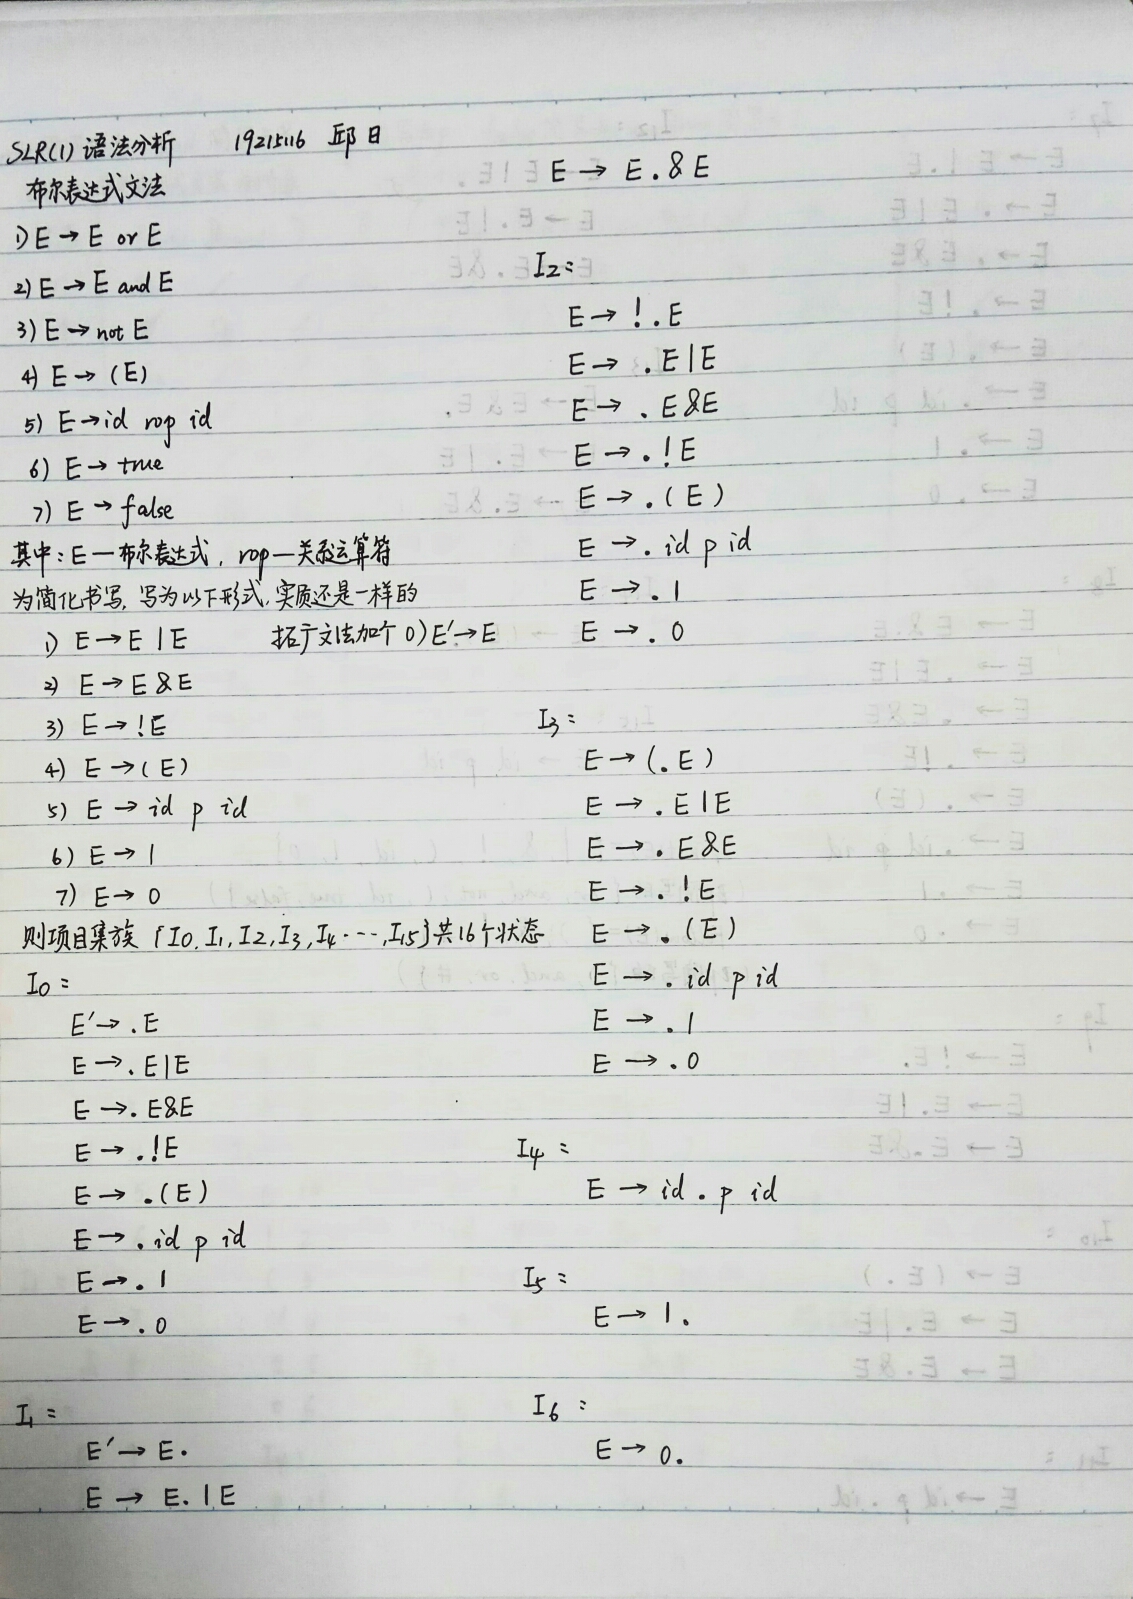 SLR(1) 语法分析 19215116 邱日
布尔表达式文法
1) E → E or E
2) E → E and E
3) E → not E
4) E → (E)
5) E → id rop id
6) E → true
7) E → false
其中: E — 布尔表达式, rop — 关系运算符
为简化书写, 写为以下形式, 实质还是一样的
1) E → E | E 拓广文法加个 0) E′ → E
2) E → E & E
3) E → !E
4) E → (E)
5) E → id p id
6) E → 1
7) E → 0
则项目集族 {I0, I1, I2, I3, I4 ···, I15} 共16个状态
I0:
E′ → .E
E → .E|E
E → .E&E
E → .!E
E → .(E)
E → .id p id
E → .1
E → .0
I1:
E′ → E.
E → E.|E
E → E.&E
I2:
E → !.E
E → .E|E
E → .E&E
E → .!E
E → .(E)
E → .id p id
E → .1
E → .0
I3:
E → (.E)
E → .E|E
E → .E&E
E → .!E
E → .(E)
E → .id p id
E → .1
E → .0
I4:
E → id.p id
I5:
E → 1.
I6:
E → 0.